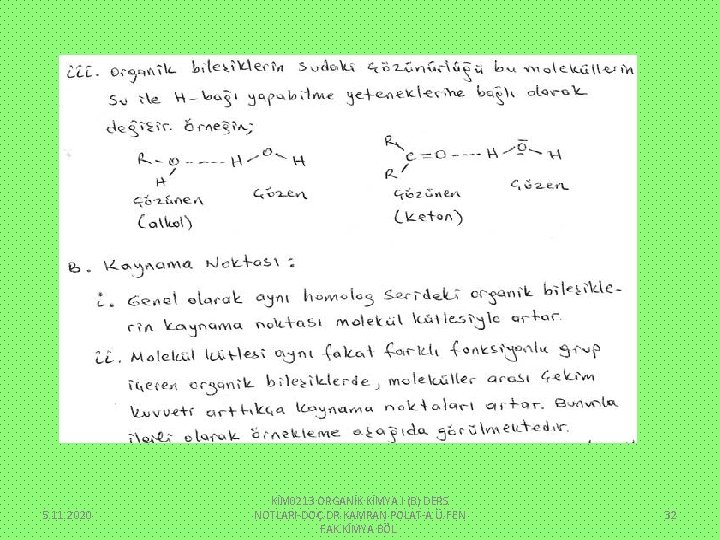 iii. Organik bileşiklerin sudaki çözünürlüğü bu moleküllerin
su ile H-bağı yapabilme yeteneklerine bağlı olarak
değişir. Örneğin;
R-O-----H-O-H
H
çözünen
çözen
(alkol)
R
C=O----H-O-H
R
çözünen
çözen
(keton)
B. Kaynama Noktası:
i. Genel olarak aynı homolog serideki organik bileşikle-
rin kaynama noktası molekül kütlesiyle artar.
ii. Molekül kütlesi aynı fakat farklı fonksiyonlu grup
içeren organik bileşiklerde, moleküller arası çekim
kuvveti arttıkça kaynama noktaları artar. Bununla
ilgili olarak örnekleme aşağıda görülmektedir.
5.11.2020
KİM0213 ORGANİK KİMYA I (B) DERS
NOTLARI-DOÇ.DR.KAMRAN POLAT-A.Ü.FEN
FAK.KİMYA BÖL
32